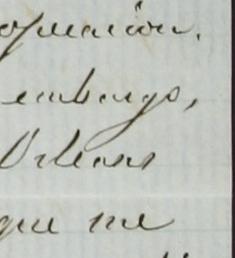 opinion.
embargo,
Orleans
que me